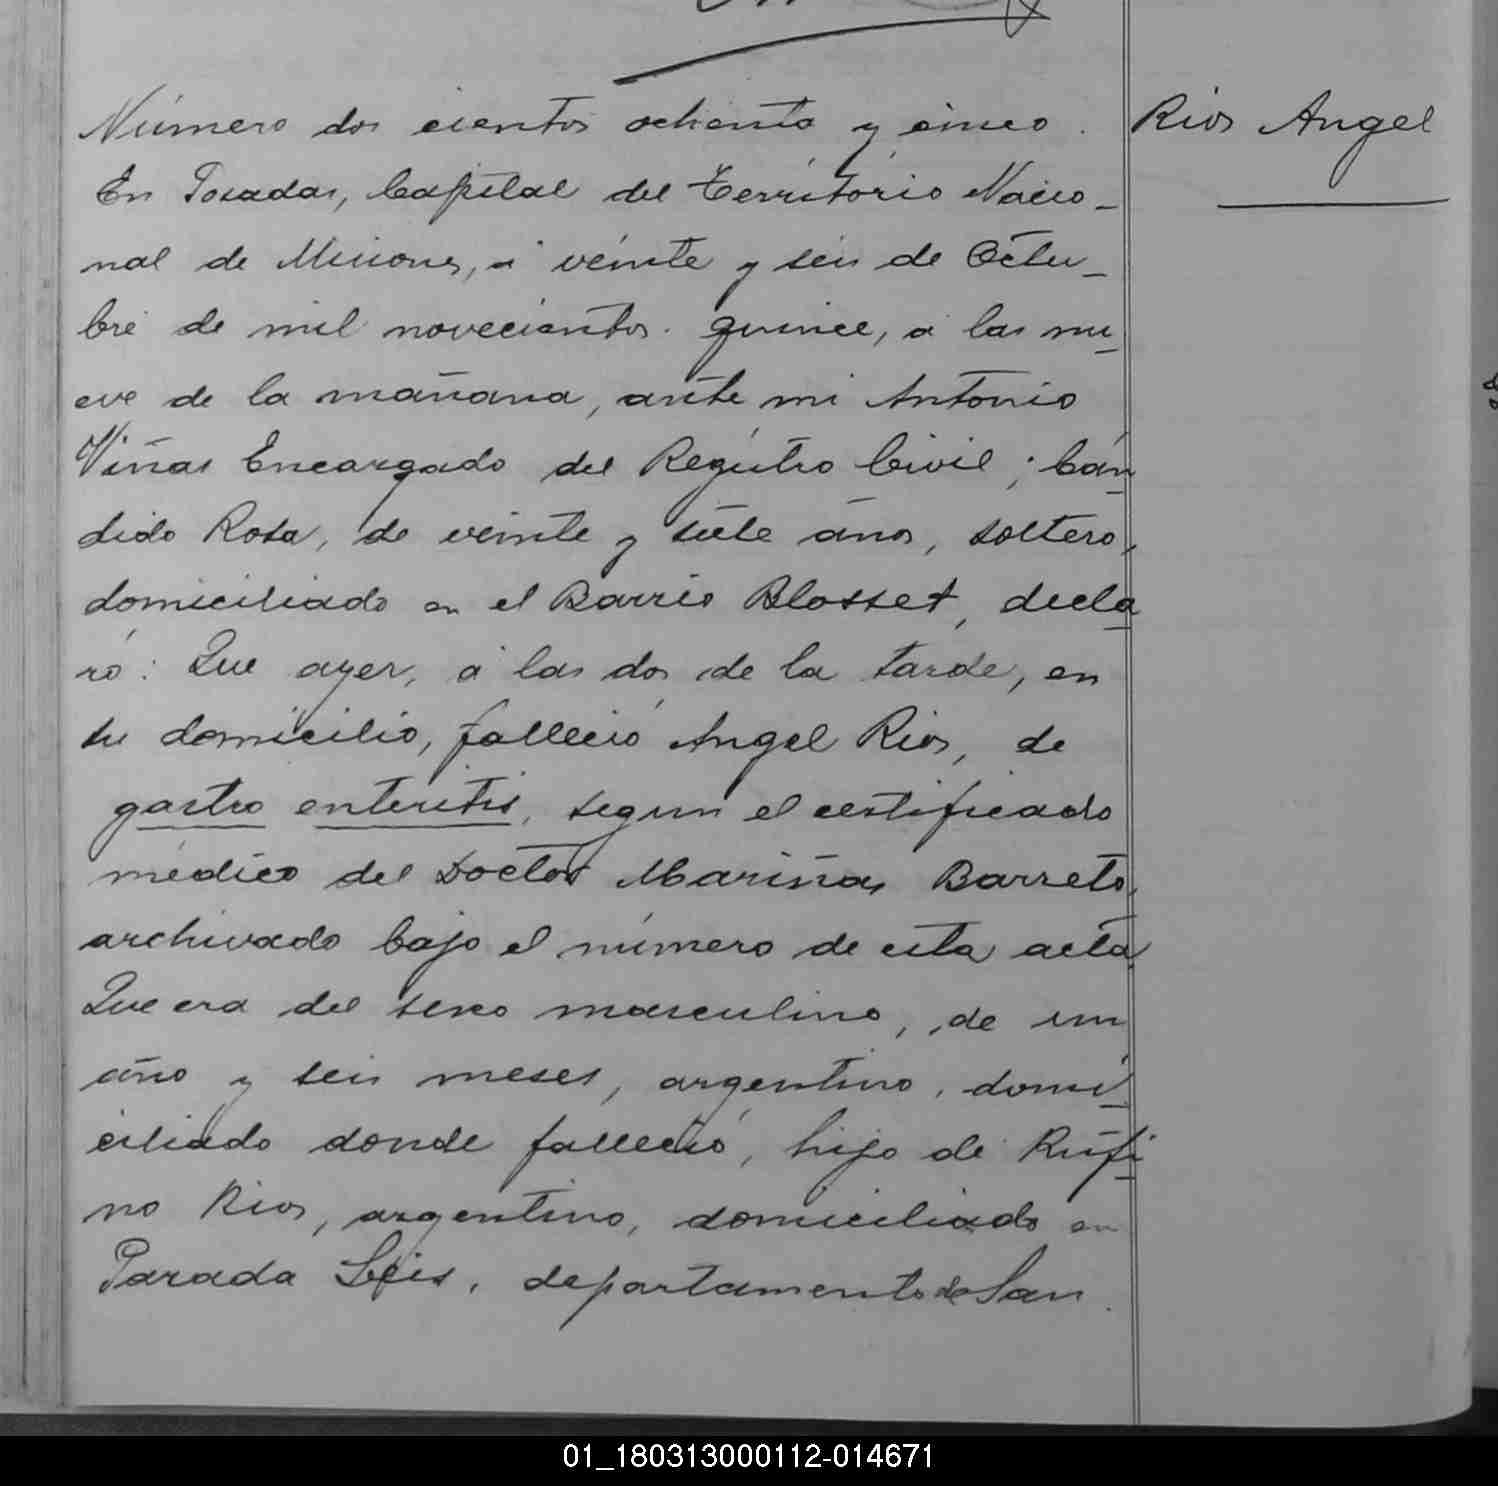 Número dos cientos ochenta y cinco.
Rios Angel
En Posadas, Capital del Território Nacio-
nal de Misiones, á veinte y seis de Octu-
bre de mil novecientos quince, á las nu-
eve de la mañana, ante mi Antonio
Viñas Encargado del Registro Civil; Cán-
dido Rosa, de veinte y siete años, soltero,
domiciliado en el Barrio Blosset, decla-
ró: Que ayer, á las dos de la tarde, en
su domicilio, falleció Angel Rios, de
gastro enteritis, segun el certificado
médico del Doctor Mariñas Barreto,
archivado bajo el número de esta acta
Que era del sexo masculino, de un
año y seis meses, argentino, domi-
ciliado donde falleció, hijo de Rufi-
no Rios, argentino, domiciliado en
Parada Leis, departamento de San
01_180313000112-014671